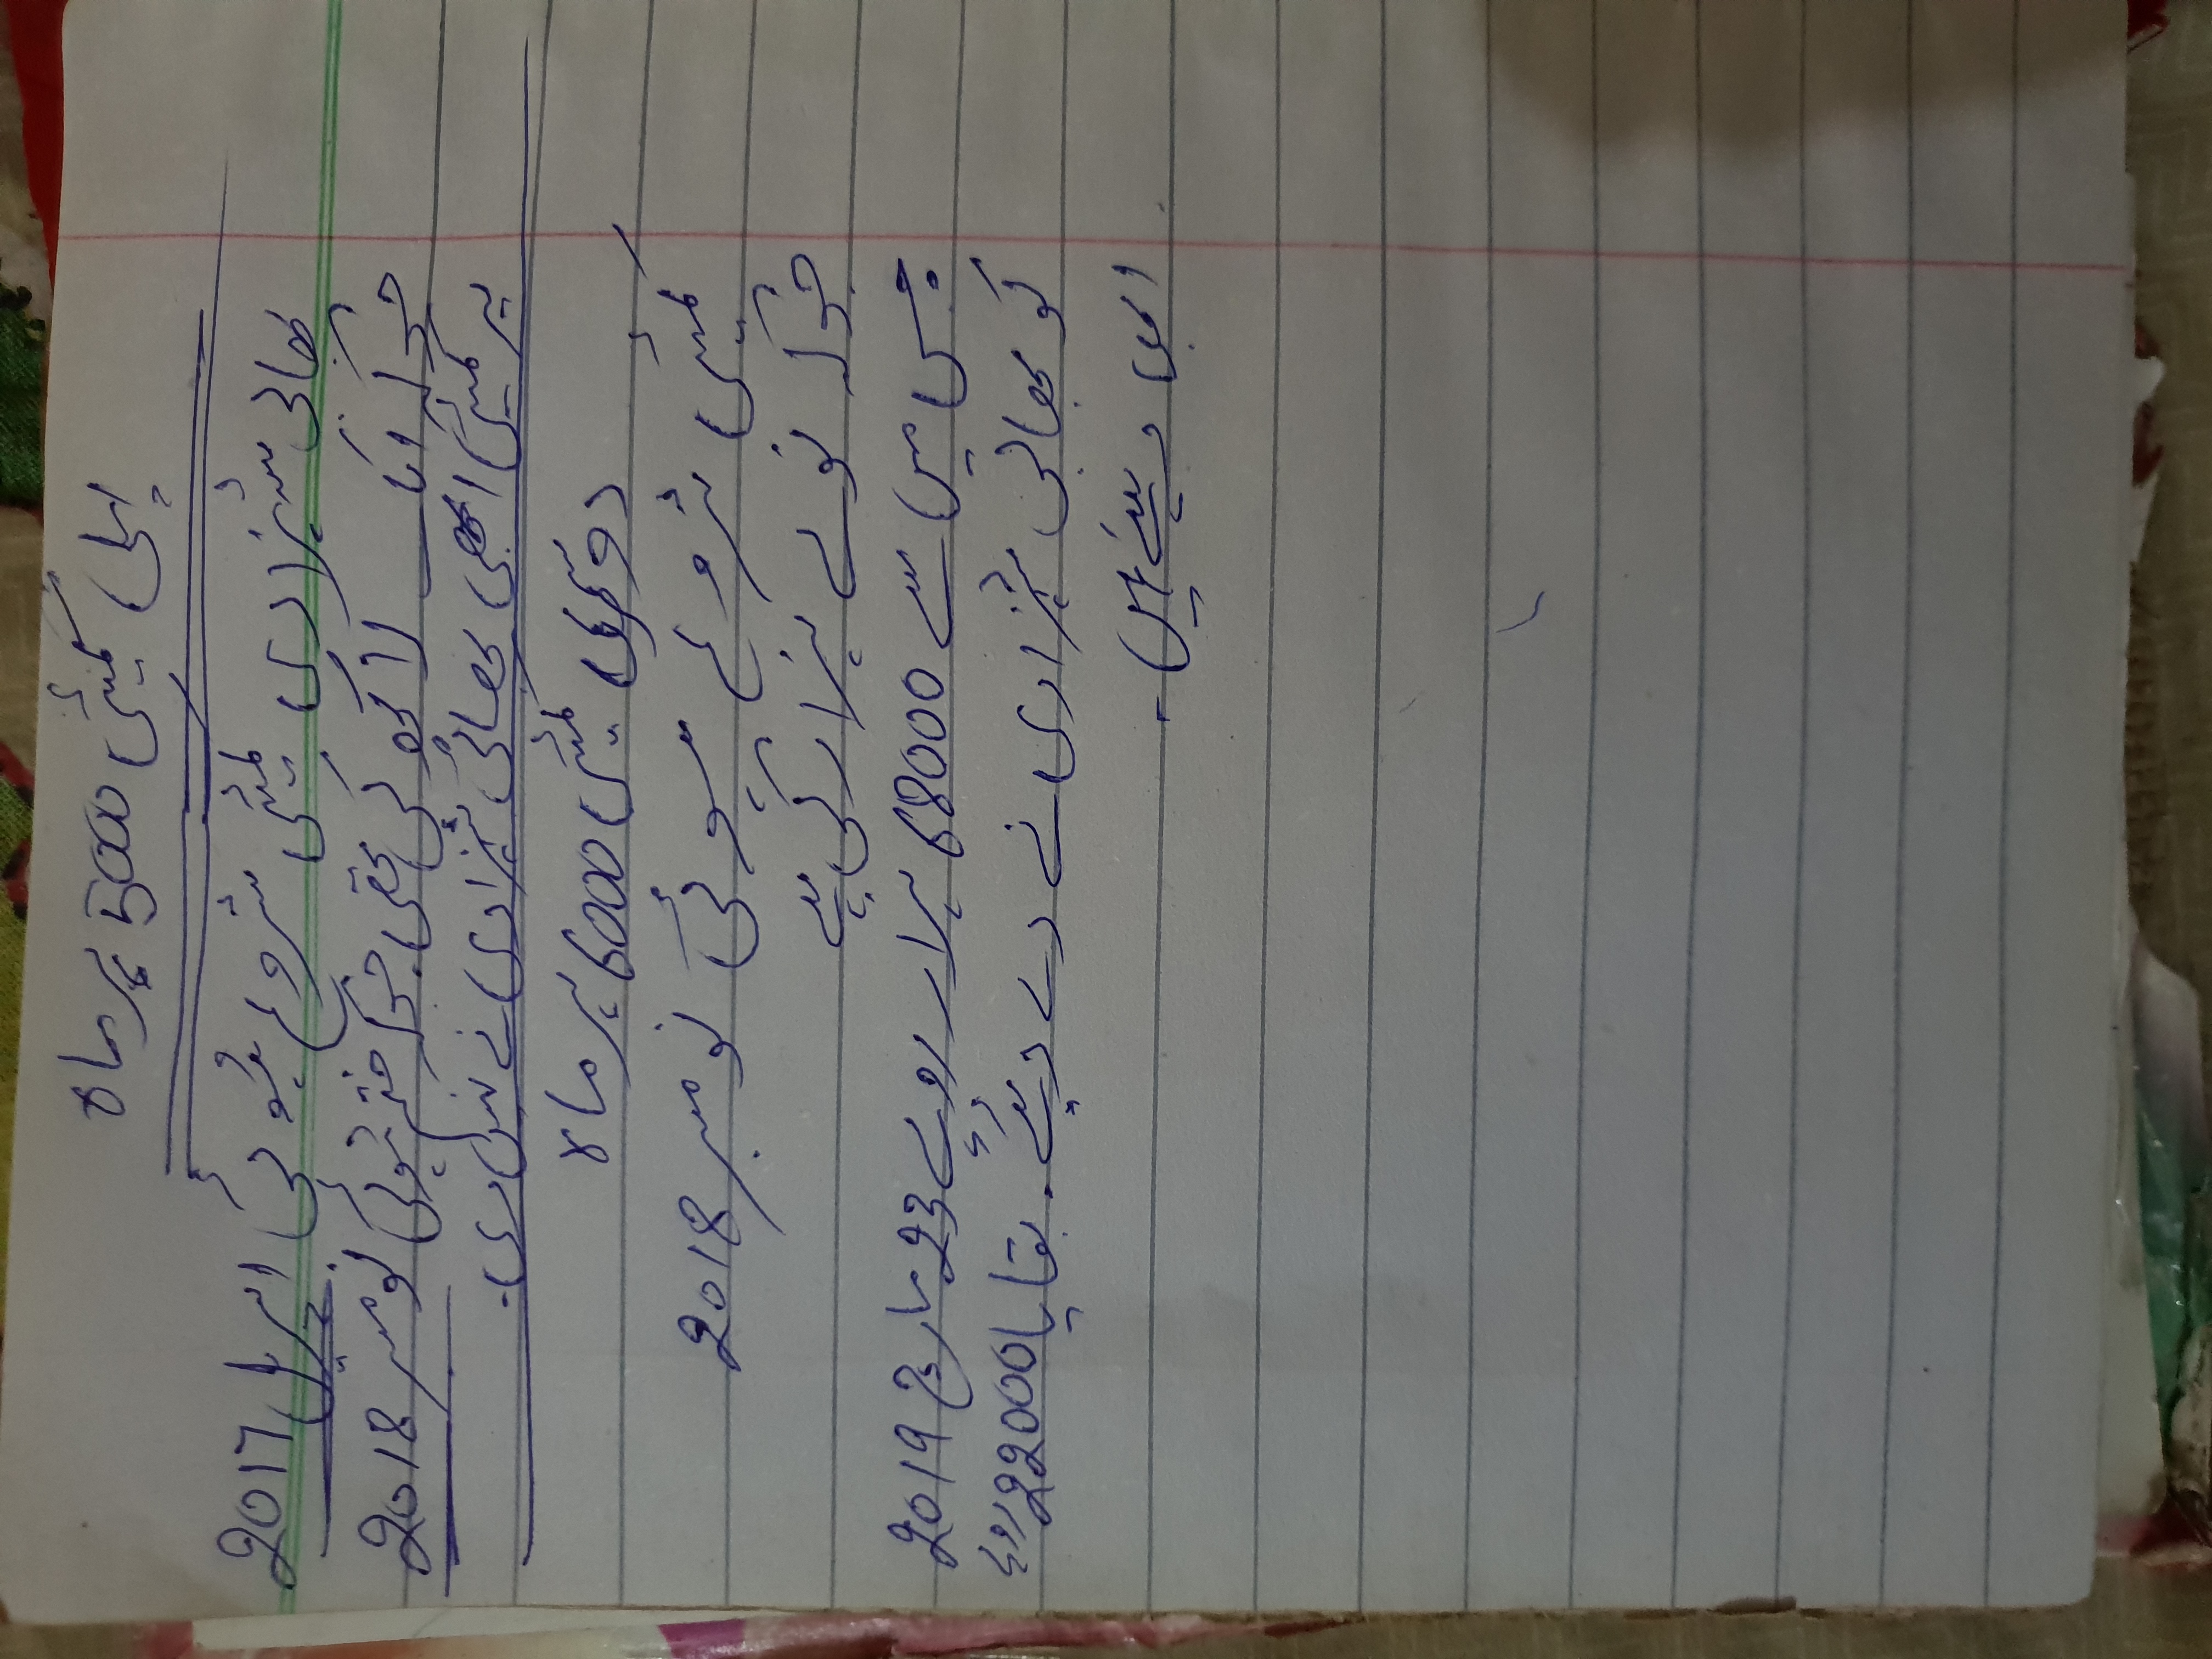 پہلی کمیٹی 5000 پر ماہ
بھائی شہزادی کمیٹی شروع ہوئی اپریل 2017
جوکہ ایک لاکھ کی تھی جوکہ ختم ہوئی نومبر 2018
پر کمیٹی ابھی بھائی شہزادی نے نہیں دی۔
دوسری کمیٹی 6000 پر ماہ
کمیٹی شروع ہوئی نومبر 2018
جوکہ نوے ہزار کی ہے
جس میں سے 68000 ہزار روپے 23 مارچ 2019
کو بھائی شہزادی نے دے دیئے۔ بقایا 22000 روپے
ابھی دینے ہیں۔